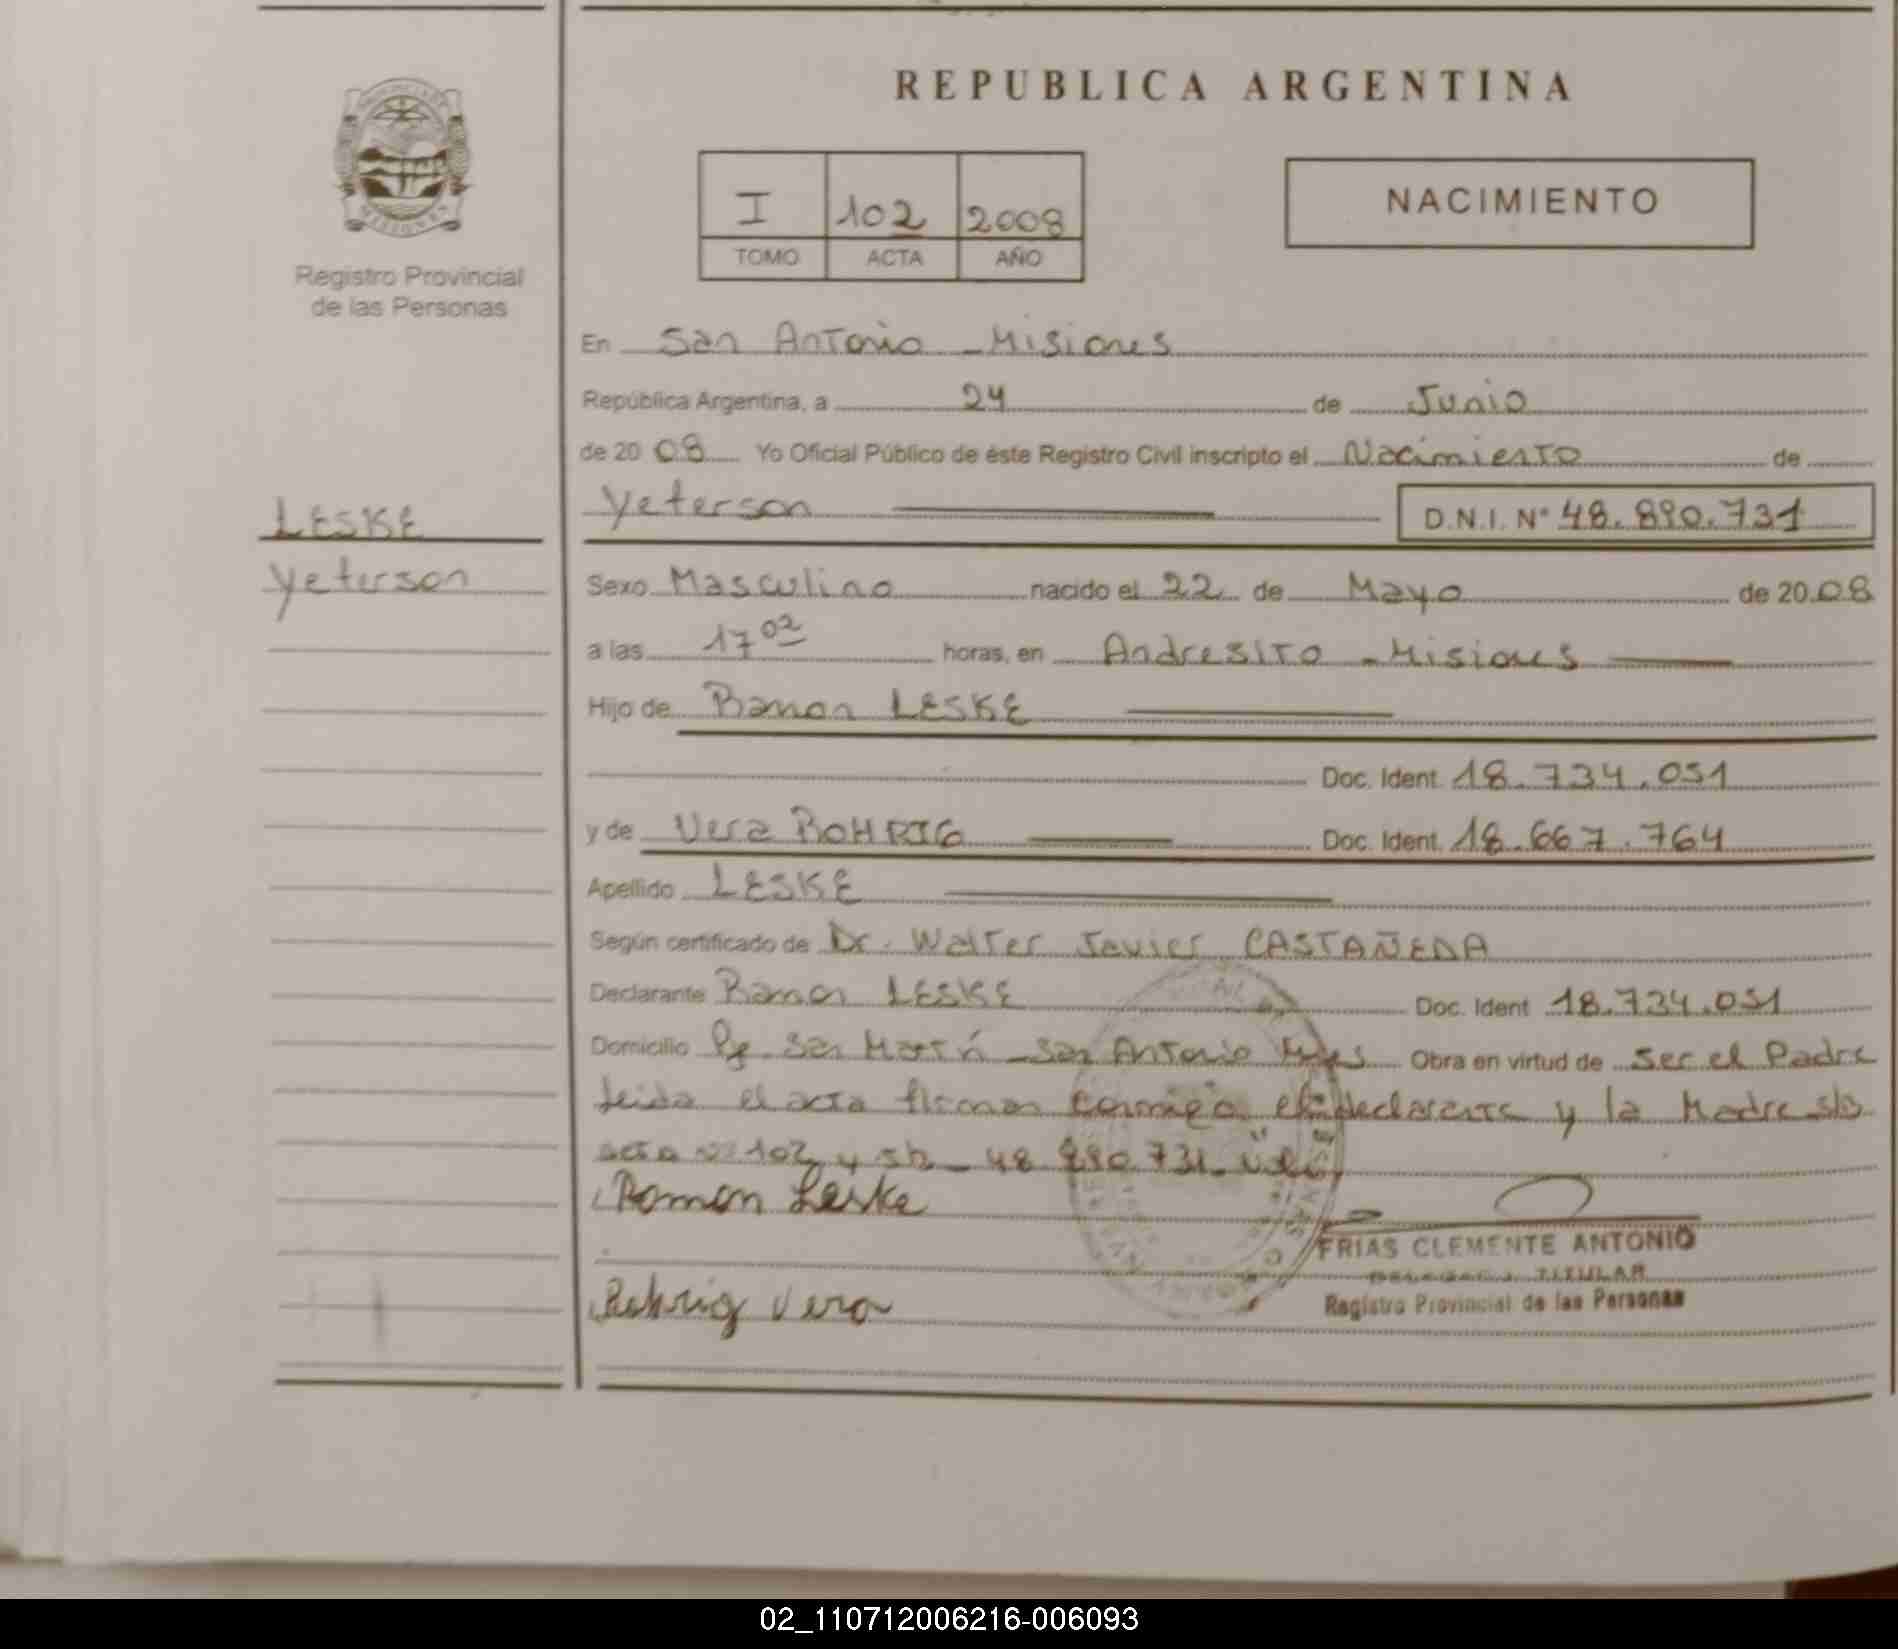 REPUBLICA ARGENTINA
MISIONES
Registro Provincial
de las Personas
I 102 2008
TOMO ACTA AÑO
NACIMIENTO
En San Antonio - Misiones
República Argentina, a 24 de Junio
de 20 08 Yo Oficial Público de éste Registro Civil inscripto el Nacimiento de
LESKE
Yeterson
Yeterson D.N.I. Nº 48.890.731
Sexo Masculino nacido el 22 de Mayo de 20 08
a las 17 02 horas, en Andresito - Misiones
Hijo de Ramon LESKE
Doc. Ident. 18.734.051
y de Vera ROHRIG Doc. Ident. 18.667.764
Apellido LESKE
Según certificado de Dr. Walter Javier CASTAÑEDA
Declarante Ramon LESKE Doc. Ident 18.734.051
Domicilio San Martín - San Antonio Mnes Obra en virtud de ser el Padre
Leida el acta firman conmigo el declarante y la Madre s/b
acta nº 102 y s/b - 48.890.731
Ramon Leske
Rohrig Vera
FRIAS CLEMENTE ANTONIO
DELEGADO TITULAR
Registro Provincial de las Personas
02_110712006216-006093